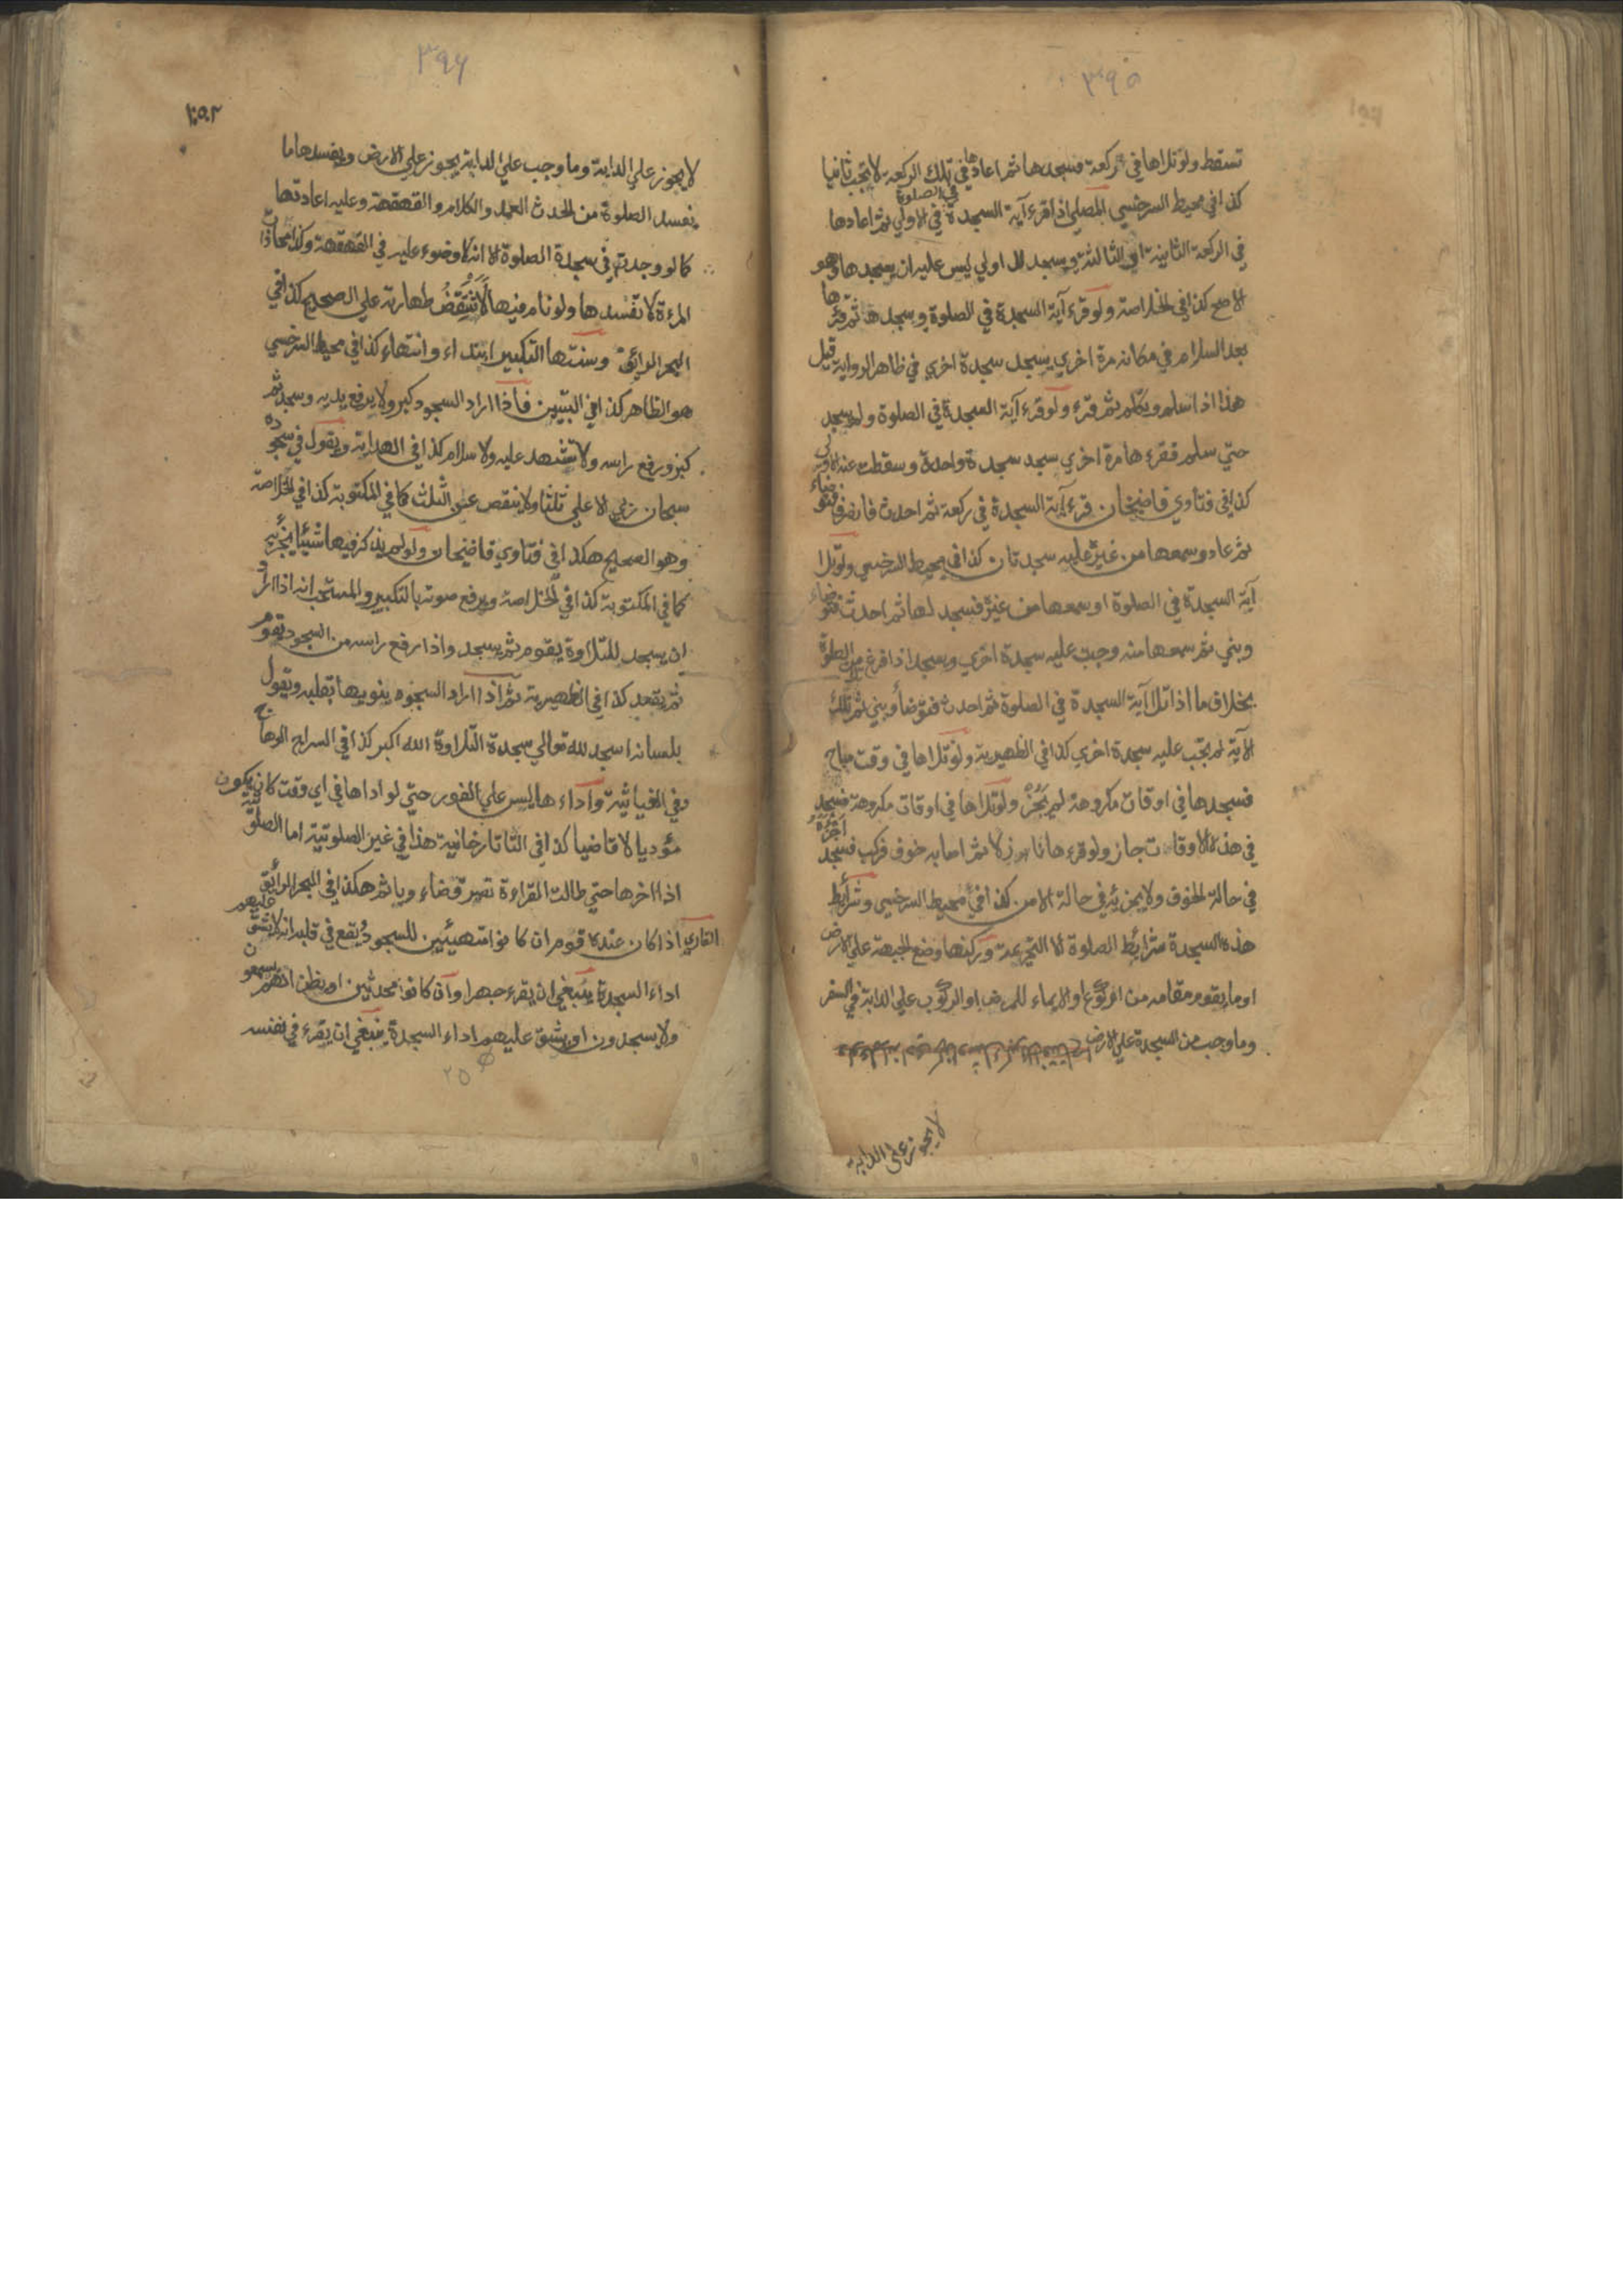 ٣٩٥
تسقط ولو تلاها في ركعة فسجدها ثم اعادها في تلك الركعة لا تجب ثانيا
كذا في محيط السرخسي المصلي اذا قرء آية السجدة في الصلوة في الاولي ثم اعادها
في الركعة الثانية او الثالثة وسجد للاولي ليس عليه ان يسجدها وهو
الاصح كذا في الخلاصة ولو قرء آية السجدة في الصلوة وسجدها ثم قرءها
بعد السلام في مكانه مرة اخري يسجد سجدة اخري في ظاهر الرواية قيل
هذا اذا سلم وتكلم ثم قرء ولو قرء آية السجدة في الصلوة ولم يسجد
حتي سلم فقرءها مرة اخري سجد سجدة واحدة وسقطت عنه الاولي
كذا في فتاوي قاضيخان قرء آية السجدة في ركعة ثم احدث فانصرف فتوضاء
ثم عاد وسمعها من غيره عليه سجدتان كذا في محيط السرخسي ولو تلا
آية السجدة في الصلوة او سمعها من غيره فسجد لها ثم احدث فتوضاء
وبني ثم سمعها منه وجبت عليه سجدة اخري ويسجد اذا فرغ من الصلوة
بخلاف ما اذا تلا آية السجدة في الصلوة ثم احدث فتوضأ وبني ثم تلا تلك
الآية لم تجب عليه سجدة اخري كذا في الظهيرية ولو تلاها في وقت مباح
فسجدها في اوقات مكروهة لم يجز ولو تلاها في اوقات مكروهة فسجد
في هذه الاوقات جاز ولو قرءها نازلا ثم اصابه خوف فركب فسجد اجزءه
في حالة الخوف ولا يجزئه في حالة الامن كذا في محيط السرخسي وشرائط
هذه السجدة شرائط الصلوة الا التحريمة وركنها وضع الجبهة علي الارض
او ما يقوم مقامه من الركوع او الايماء للمرض او الركوب علي الدابة في السفر
وما وجب من السجدة علي الارض
لا يجوز علي الدابة
٣٩٦
لا يجوز علي الدابة وما وجب علي الدابة يجوز علي الارض ويفسدها ما
يفسد الصلوة من الحدث العمد والكلام والقهقهة وعليه اعادتها
كما لو وجدت في سجدة الصلوة الا انه لا وضوء عليه في القهقهة وكذا محاذات
المرءة لا تفسدها ولو نام فيها لا تنتقض طهارته علي الصحيح كذا في
البحر الرائق وسنتها التكبير ابتداء وانتهاء كذا في محيط السرخسي
هو الظاهر كذا في التبيين فاذا اراد السجود كبر ولا يرفع يديه وسجد ثم
كبر ورفع راسه ولا تشهد عليه ولا سلام كذا في الهداية ويقول في سجوده
سبحان ربي الاعلي ثلثا ولا ينقص عن الثلث كما في المكتوبة كذا في الخلاصة
وهو الصحيح هكذا في فتاوي قاضيخان ولو لم يذكر فيها شيئا يجزيه
كما في المكتوبة كذا في الخلاصة ويرفع صوته بالتكبير والمستحب انه اذا اراد
ان يسجد للتلاوة يقوم ثم يسجد واذا رفع راسه من السجود يقوم
ثم يقعد كذا في الظهيرية ثم اذا اراد السجود ينويها بقلبه ويقول
بلسانه اسجد لله تعالي سجدة التلاوة الله اكبر كذا في السراج الوهاج
وفي الغياثية وآداءها ليس علي الفور حتي لو اداها في اي وقت كان يكون
مؤديا لا قاضيا كذا في التاتارخانية هذا في غير الصلوتية اما الصلوتية
اذا اخرها حتي طالت القراءة تصير قضاء وياثم هكذا في البحر الرائق
القاري اذا كان عنده قوم ان كانوا متهيئين للسجود ويقع في قلبه انه لا يشق عليهم
اداء السجدة ينبغي ان يقرء جهرا وان كانوا محدثين او يظن انهم يسمعون
ولا يسجدون او يشق عليهم اداء السجدة ينبغي ان يقرء في نفسه
٢٥